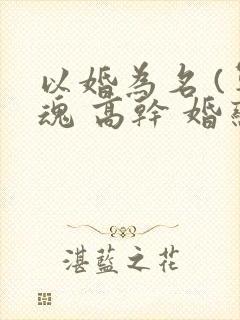 以婚為名(
魂 高幹 婚
湛藍之花